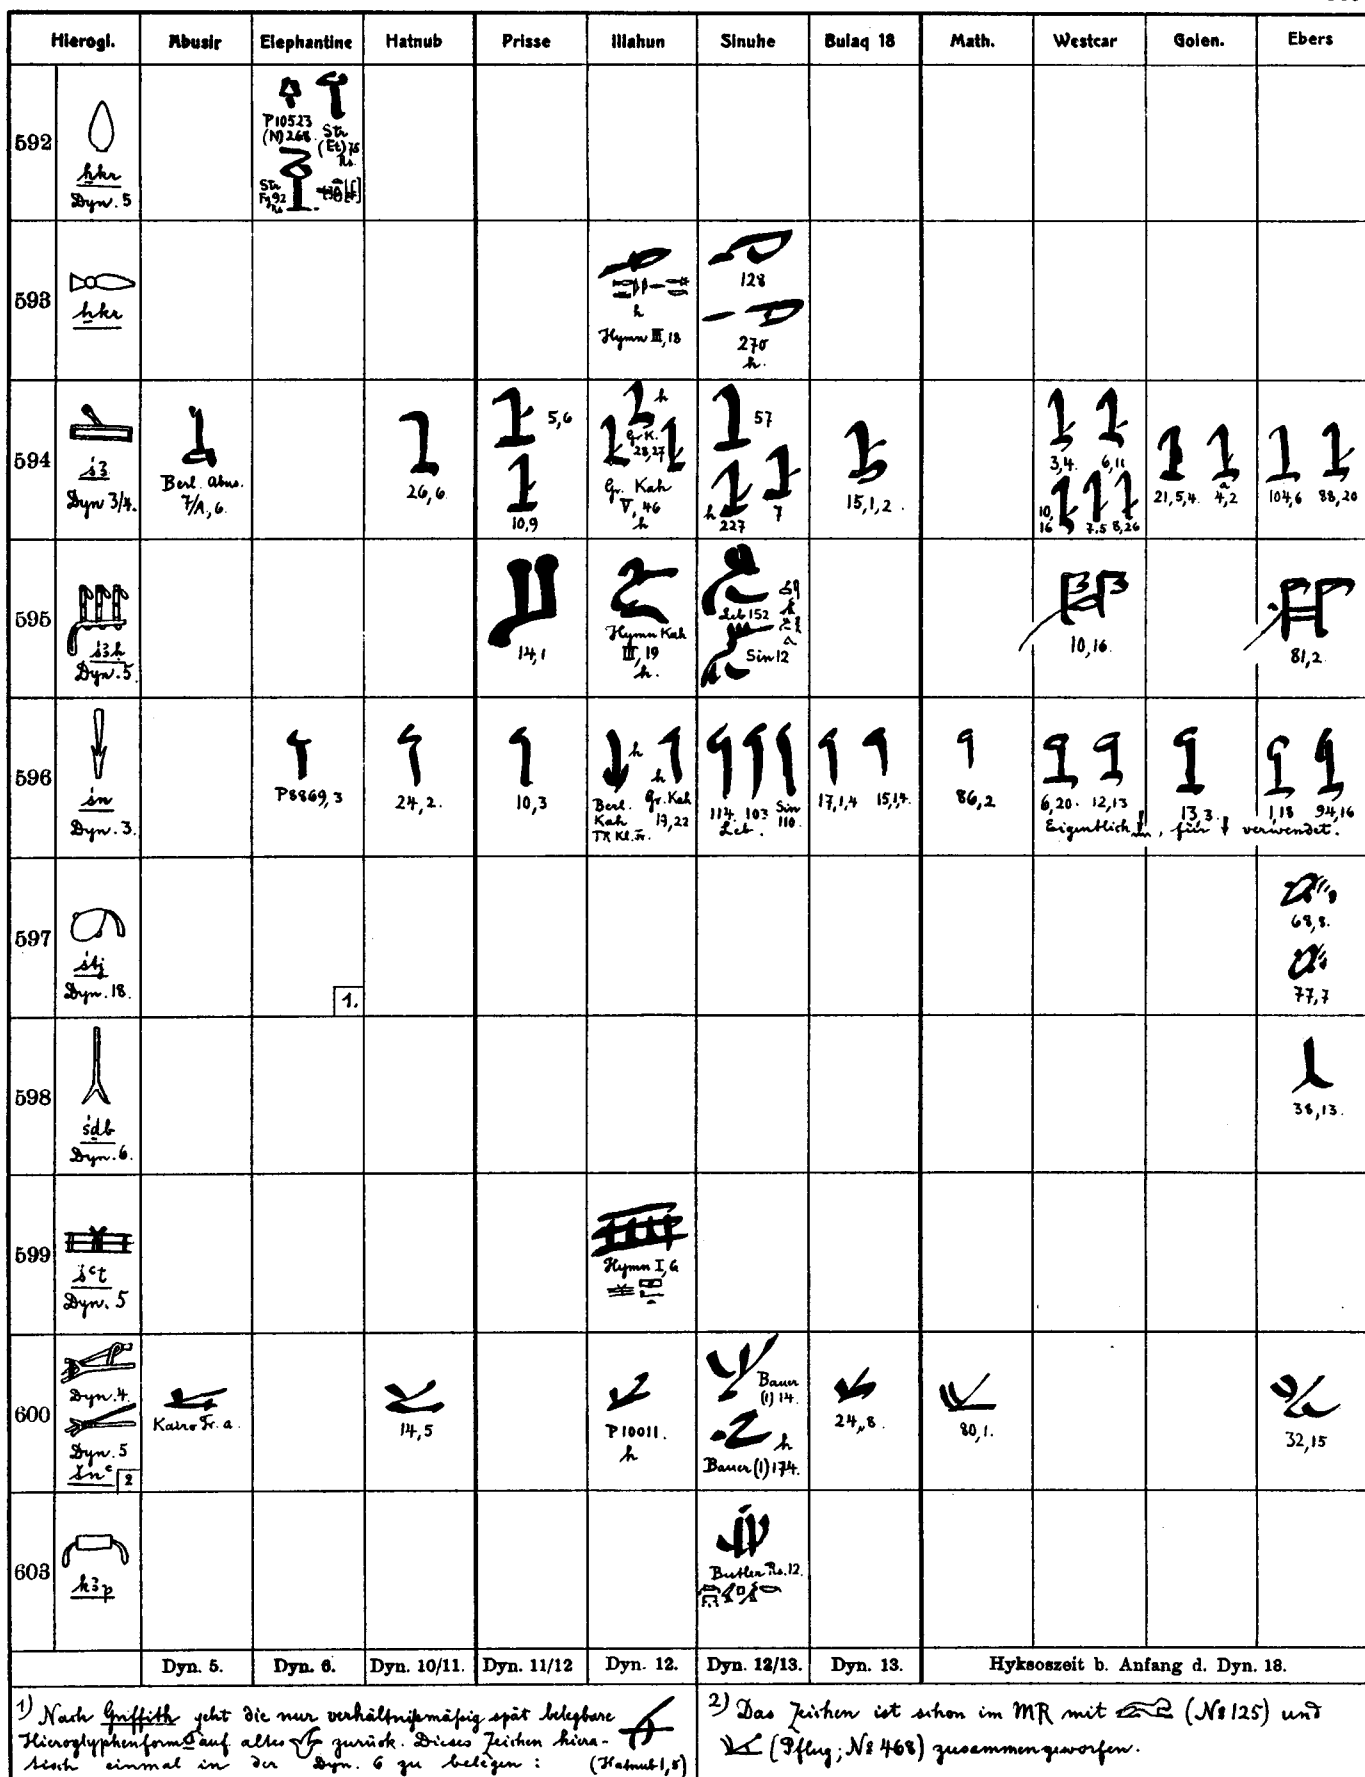 Hierogl. Abusir Elephantine Hatnub Prisse Illahun Sinuhe Bulaq 18 Math. Westcar Golen. Ebers
592
ẖkr
Dyn. 5
P10523
(N) 268
Str
(Et) 75
Rs.
Str
Fg 92
Rs
593
ẖkr
h
Hymn III, 18
128
270
h.
594
śꜣ
Dyn 3/4.
Berl. Abus.
7/A, 6.
26, 6.
5,6
10,9
h
Gr. K.
28,27
Gr. Kah
V, 46
h
57
h
227
7
15,1,2.
3,4.
6,11
10,
16
7,5
8,26
21,5,4.
a
4,2
104,6
88,20
595
śꜣḥ
Dyn. 5
14,1
Hymn Kah
III, 19
h.
Leb 152
Sin 12
10,16.
81,2.
596
śn
Dyn. 3.
P8869, 3
24, 2.
10,3
h
h
Berl.
Kah
Gr. Kah
19,22
114. 103
Leb.
Sin
110.
17,1,4
15,14.
86,2
6,20.
12,13
13,3.
1,18
94,16
Eigentlich , für verwendet.
597
śtj
Dyn. 18.
1.
68,8.
77,7
598
śdb
Dyn. 6.
38,13.
599
śꜥt
Dyn. 5
Hymn I, 6
600
Dyn. 4.
Dyn. 5
šnꜥ
2
Kairo Fr. a.
14,5
P10011.
h
Bauer
(1) 14.
h
Bauer (1) 174.
24, 8.
80,1.
32,15
603
kꜣp
Butler Rs. 12.
Dyn. 5. Dyn. 6. Dyn. 10/11. Dyn. 11/12 Dyn. 12. Dyn. 12/13. Dyn. 13. Hyksoszeit b. Anfang d. Dyn. 18.
1) Nach Griffith geht die nur verhältnißmäßig spät belegbare
Hieroglyphenform auf altes zurück. Dieses Zeichen hiera-
tisch einmal in der Dyn. 6 zu belegen: (Hatnub 1, 8)
2) Das Zeichen ist schon im MR mit (№ 125) und
(Pflug; № 468) zusammengeworfen.